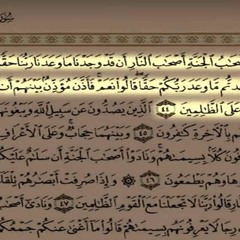 أَصۡحَٰبُ ٱلۡجَنَّةِ أَصۡحَٰبَ ٱلنَّارِ أَن قَدۡ وَجَدۡنَا مَا وَعَدَنَا رَبُّنَا حَقّٗا
مَّا وَعَدَ رَبُّكُمۡ حَقّٗاۖ قَالُواْ نَعَمۡۚ فَأَذَّنَ مُؤَذِّنُۢ بَيۡنَهُمۡ أَن
عَلَى ٱلظَّٰلِمِينَ ٤٤ ٱلَّذِينَ يَصُدُّونَ عَن سَبِيلِ ٱللَّهِ وَيَبۡغُونَهَا
بِٱلۡأٓخِرَةِ كَٰفِرُونَ ٤٥ وَبَيۡنَهُمَا حِجَابٞۚ وَعَلَى ٱلۡأَعۡرَافِ
كُلَّۢا بِسِيمَىٰهُمۡۚ وَنَادَوۡاْ أَصۡحَٰبَ ٱلۡجَنَّةِ أَن سَلَٰمٌ عَلَيۡكُمۡۚ
وَهُمۡ يَطۡمَعُونَ ٤٦ وَإِذَا صُرِفَتۡ أَبۡصَٰرُهُمۡ تِلۡقَآءَ
قَالُواْ رَبَّنَا لَا تَجۡعَلۡنَا مَعَ ٱلۡقَوۡمِ ٱلظَّٰلِمِينَ ٤٧ وَنَادَىٰٓ أَصۡحَٰبُ
رِجَالٗا يَعۡرِفُونَهُم بِسِيمَىٰهُمۡ قَالُواْ مَآ أَغۡنَىٰ عَنكُمۡ جَمۡعُكُمۡ